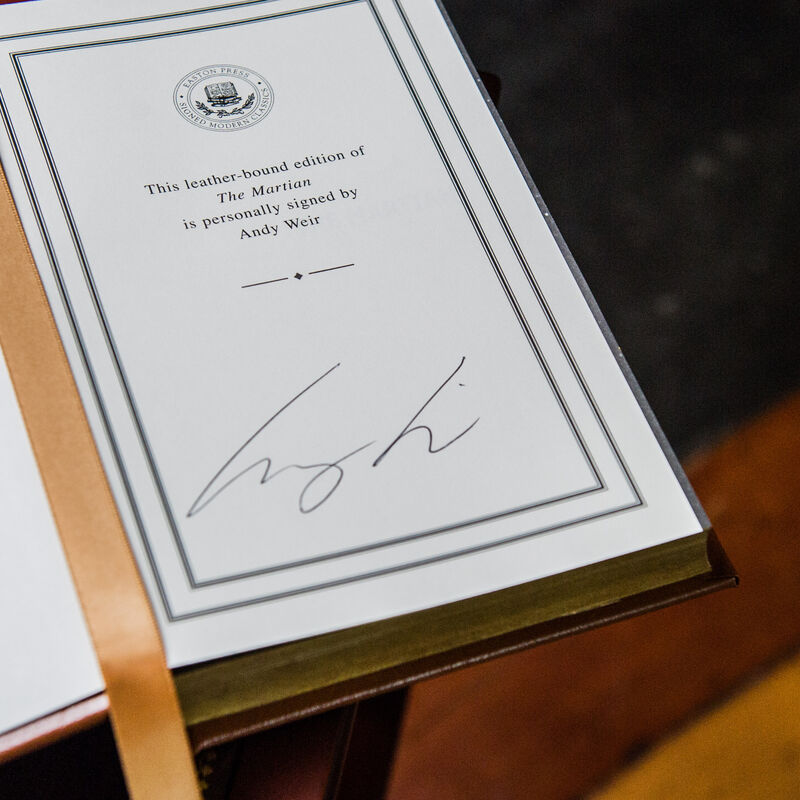 EASTON PRESS
SIGNED MODERN CLASSICS
This leather-bound edition of
The Martian
is personally signed by
Andy Weir